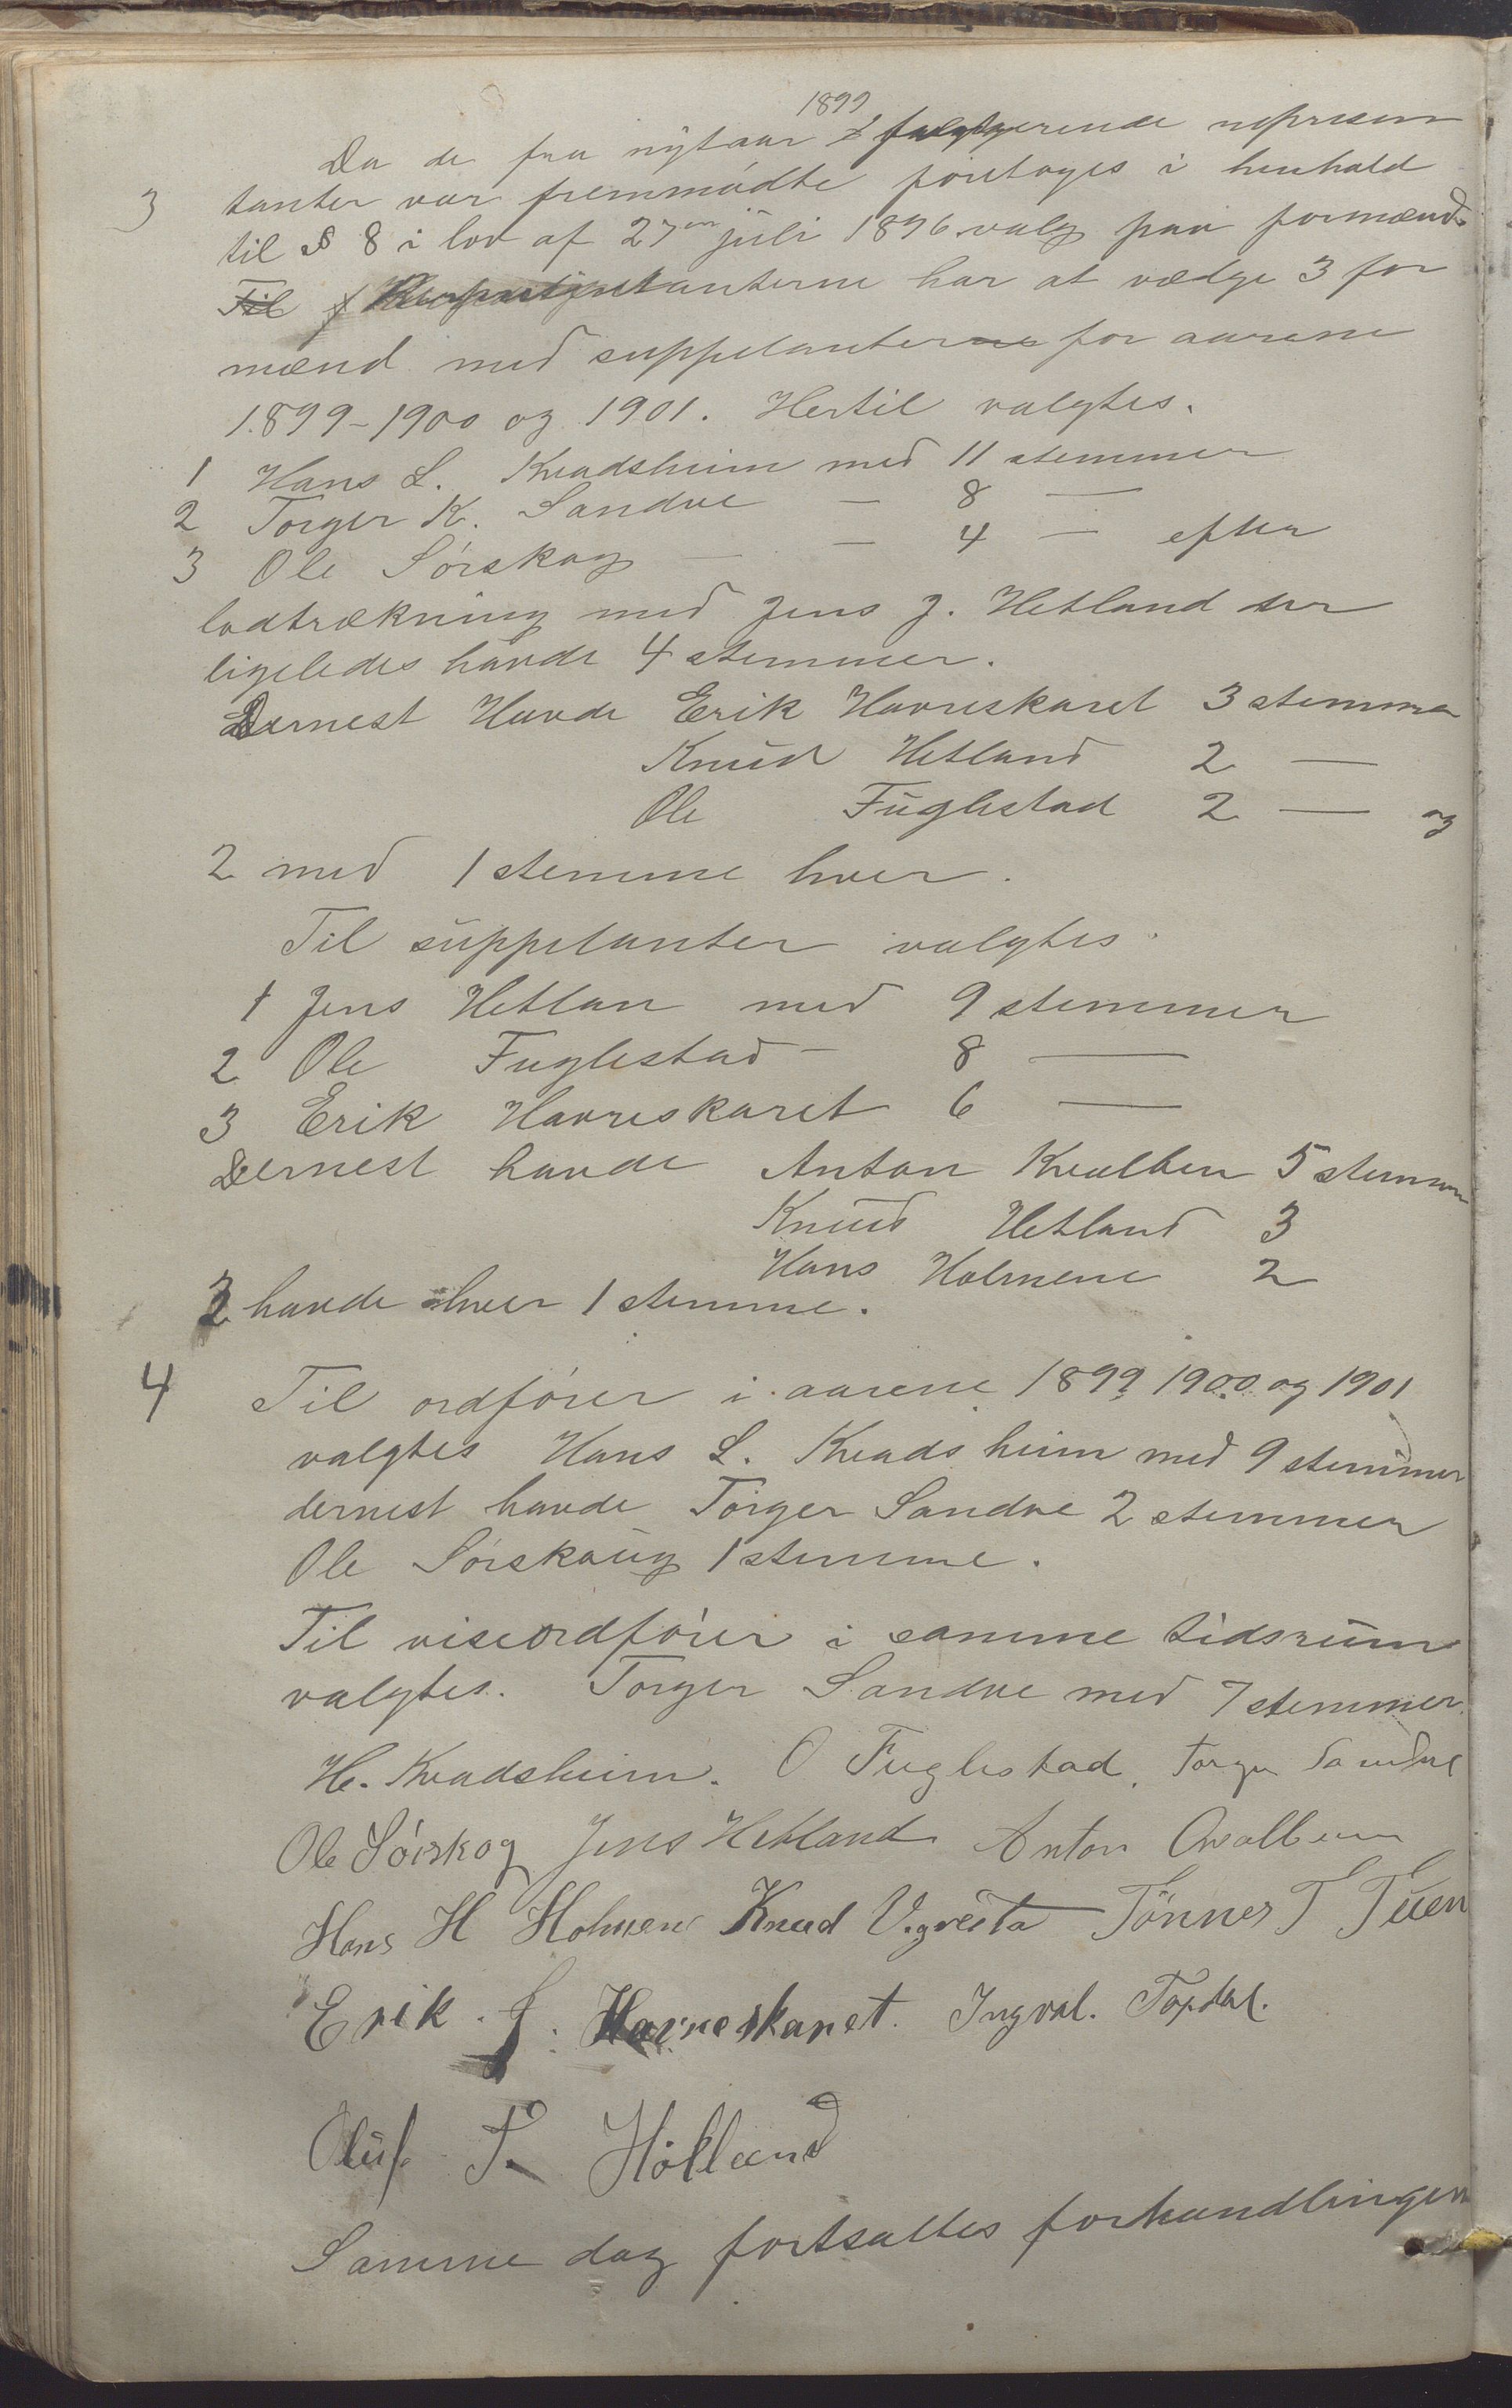 1899
Da de fra nytaar fungerende represen
3 tanter var fremmødte foretoges i henhold
til § 8 i lov af 27en juli 1896 valg paa formænd.
Til Repræsentanterne har at vælge 3 for
mænd med suppelanterne for aarene
1899-1900 og 1901. Hertil valgtes.
1 Hans L. Kvadsheim med 11 stemmer
2 Torger K. Sandve — 8 —
3 Ole Sørskog — — 4 — efter
lodtrækning med Jens J. Hetland der
ligeledes havde 4 stemmer.
Dernest Havde Erik Havreskaret 3 stemmer
Knud Hetland 2 —
Ole Fuglestad 2 — og
2 med 1 stemme hver.
Til suppelanter valgtes.
1 Jens Hetlan med 9 stemmer
2 Ole Fuglestad – 8 —
3 Erik Havreskaret 6 —
Dernest havde Anton Kvalben 5 stemmer
Knud Hetland 3
Hans Holmene 2
3 havde hver 1 stemme.
4 Til ordfører i aarene 1899, 1900 og 1901
valgtes Hans L. Kvadsheim med 9 stemmer
dernest havde Torger Sandve 2 stemmer
Ole Sørskoug 1 stemme.
Til viseordfører i samme tidsrum
valgtes. Torger Sandve med 7 stemmer.
H. Kvadsheim. O Fuglestad. Torger Sandve
Ole Sørskog Jens Hetland Anton Qvalben
Hans H Holmene Knud Vigresta Tönnes T Tuen
Erik. J. Havreskaret. Ingval. Topdal.
Oluf T. Hölland
Samme dag fortsattes forhandlingen